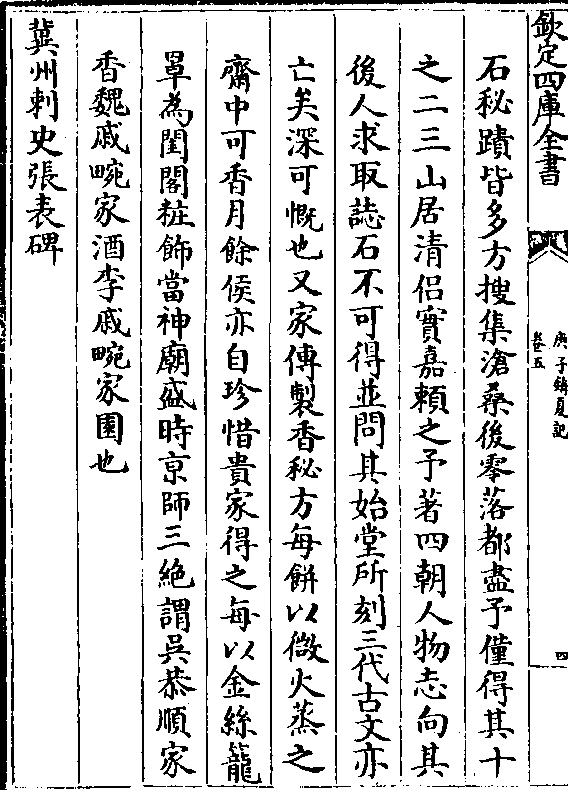 欽定四庫全書
庚子銷夏記
卷五
四
石秘蹟皆多方搜集滄桑後零落都盡予僅得其十
之二三山居清侶實嘉賴之予著四朝人物志向其
後人求取誌石不可得並問其始堂所刻三代古文亦
亡矣深可慨也又家傳製香秘方每餅以微火蒸之
齋中可香月餘侯亦自珍惜貴家得之每以金絲籠
罩為閨閣粧飾當神廟盛時京師三絶謂吳恭順家
香魏戚畹家酒李戚畹家園也
冀州刺史張表碑